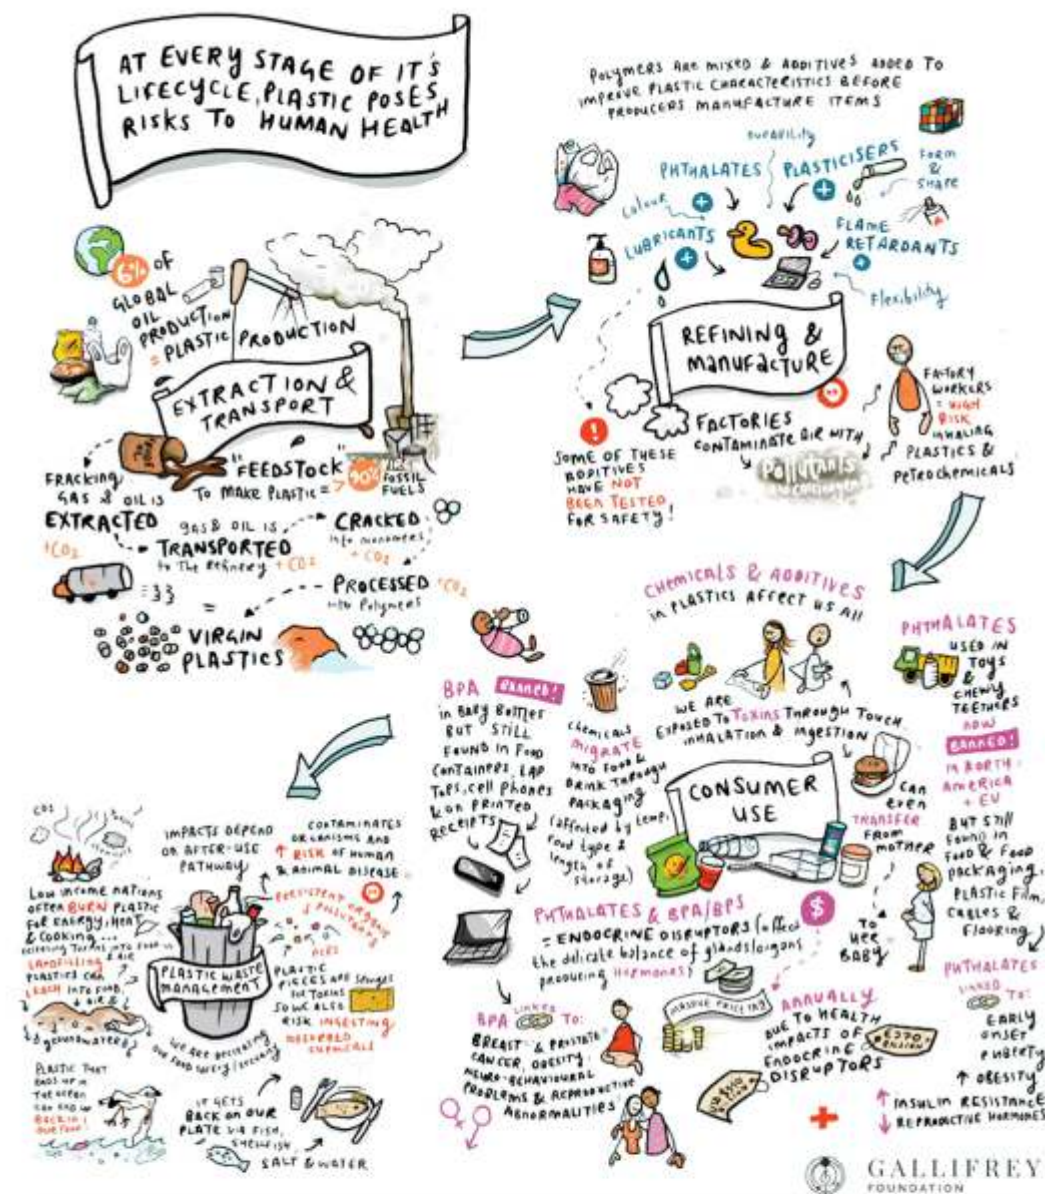 AT EVERY STAGE OF IT'S
LIFECYCLE, PLASTIC POSES
RISKS TO HUMAN HEALTH
6% OF
GLOBAL
OIL
PRODUCTION
= PLASTIC PRODUCTION
EXTRACTION &
TRANSPORT
"FEEDSTOCK"
TO MAKE PLASTIC = > 90%
FOSSIL
FUELS
FRACKING
GAS & OIL IS
EXTRACTED
+CO2
GAS & OIL IS
TRANSPORTED
to The Refinery +CO2
CRACKED
into monomers
+ CO2
PROCESSED +CO2
into Polymers
=
VIRGIN
PLASTICS
POLYMERS ARE MIXED & ADDITIVES ADDED TO
IMPROVE PLASTIC CHARACTERISTICS BEFORE
PRODUCERS MANUFACTURE ITEMS
DURABILITY
PHTHALATES
PLASTICISERS
FORM
&
SHAPE
Colour
LUBRICANTS
FLAME
RETARDANTS
Flexibility
REFINING &
MANUFACTURE
!
SOME OF THESE
ADDITIVES
HAVE NOT
BEEN TESTED
FOR SAFETY!
FACTORIES
CONTAMINATE AIR WITH
Pollutants
FACTORY
WORKERS
= HIGH
RISK
INHALING
PLASTICS &
PETROCHEMICALS
CHEMICALS & ADDITIVES
in PLASTICS AFFECT US All
WE ARE
EXPOSED TO TOXINS THROUGH TOUCH
INHALATION & INGESTION
CONSUMER
USE
BPA BANNED!
in Baby Bottles
BUT STILL
FOUND IN FOOD
CONTAINERS, LAP
TOPS, cell PHONES
& ON PRINTED
RECEIPTS
Chemicals
MIGRATE
INTO FOOD &
DRINK THROUGH
PACKAGING
(affected by temp,
food type &
length of
storage)
CAN
even
TRANSFER
FROM
MOTHER
TO
HER
BABY
PHTHALATES
USED IN
TOYS
&
CHEWY
TEETHERS
NOW
BANNED!
IN NORTH
AMERICA
+ EU
BUT STILL
FOUND IN
FOOD & FOOD
PACKAGING,
PLASTIC FILM,
CABLES &
Flooring
PHTHALATES
LINKED TO:
EARLY
ONSET
PUBERTY
↑ OBESITY
↑ INSULIN RESISTANCE
↓ REPRODUCTIVE HORMONES
PHTHALATES & BPA/BPS
= ENDOCRINE DISRUPTORS (affect
the delicate balance of glands/organs
producing HORMONES)
$
MASSIVE PRICE TAG
ANNUALLY
DUE TO HEALTH
IMPACTS OF
ENDOCRINE
DISRUPTORS
BPA LINKED TO:
BREAST & PROSTATE
CANCER, OBESITY,
NEURO-BEHAVIOURAL
PROBLEMS & REPRODUCTIVE
ABNORMALITIES
CO2
LOW INCOME NATIONS
OFTEN BURN PLASTIC
FOR ENERGY, HEAT
& COOKING...
LANDFILLING
PLASTICS CAN
LEACH INTO FOOD,
AIR &
groundwater
IMPACTS DEPEND
ON AFTER-USE
PATHWAY
CONTAMINATES
ORGANISMS AND
↑ RISK OF HUMAN
& ANIMAL DISEASE
PERSISTENT ORGANIC
POLLUTANTS
PLASTIC WASTE
MANAGEMENT
PLASTIC
PIECES ARE SPONGES
FOR TOXINS
SO WE ALSO
RISK INGESTING
CHEMICALS
WE ARE DECREASING
OUR FOOD SAFETY/SECURITY
PLASTIC THAT
ENDS UP IN
THE OCEAN
CAN END UP
BACK IN
OUR FOOD!
IT GETS
BACK ON OUR
PLATE VIA FISH,
SHELLFISH,
SALT & WATER
GALLIFREY
FOUNDATION